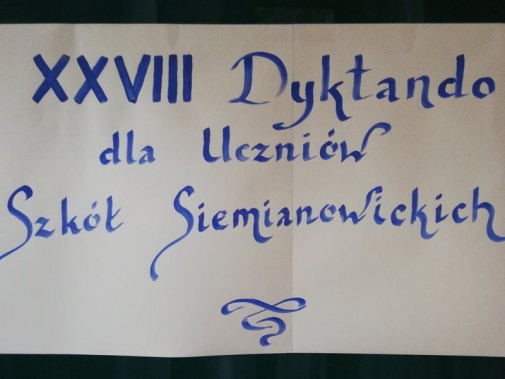 XXVIII Dyktando
dla Uczniów
Szkół Siemianowickich